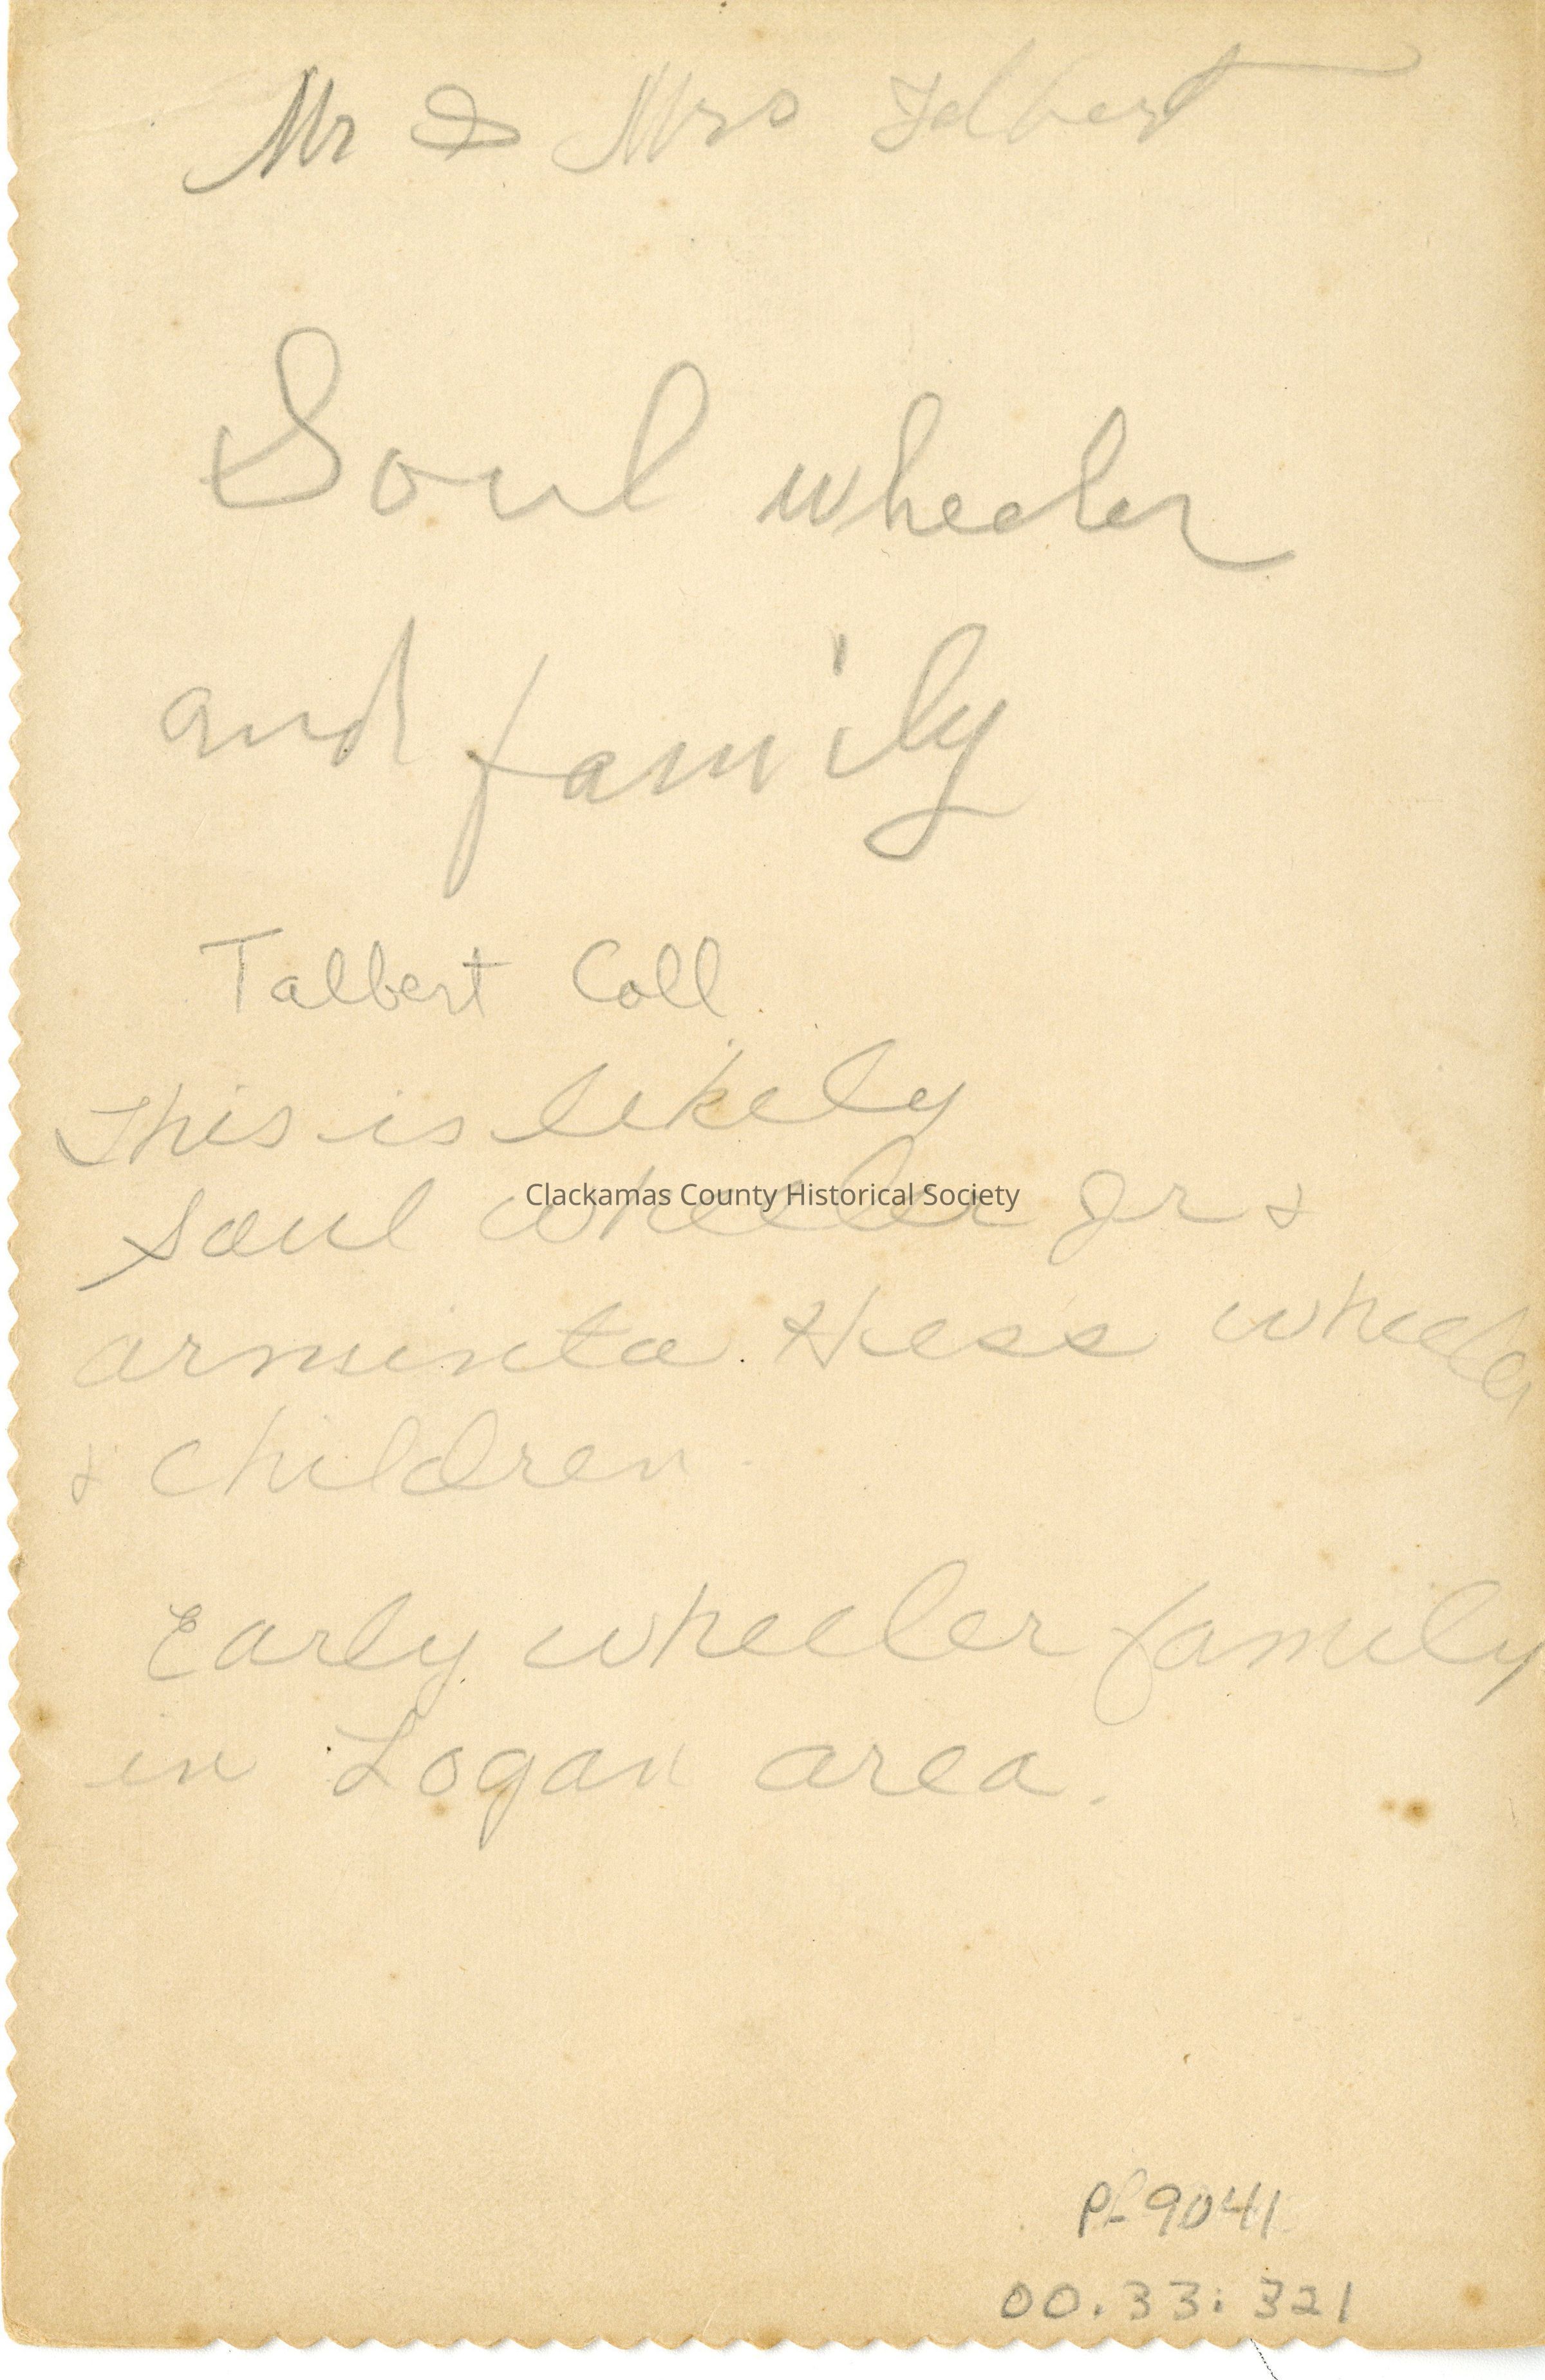 Mr & Mrs Talbert
Soul wheeler
and family
Talbert Coll.
This is likely
Saul Wheeler Jr &
arminta Hess wheeler
& children
Early wheeler family
in Logan area.
Clackamas County Historical Society
PL 9041
00.33:321